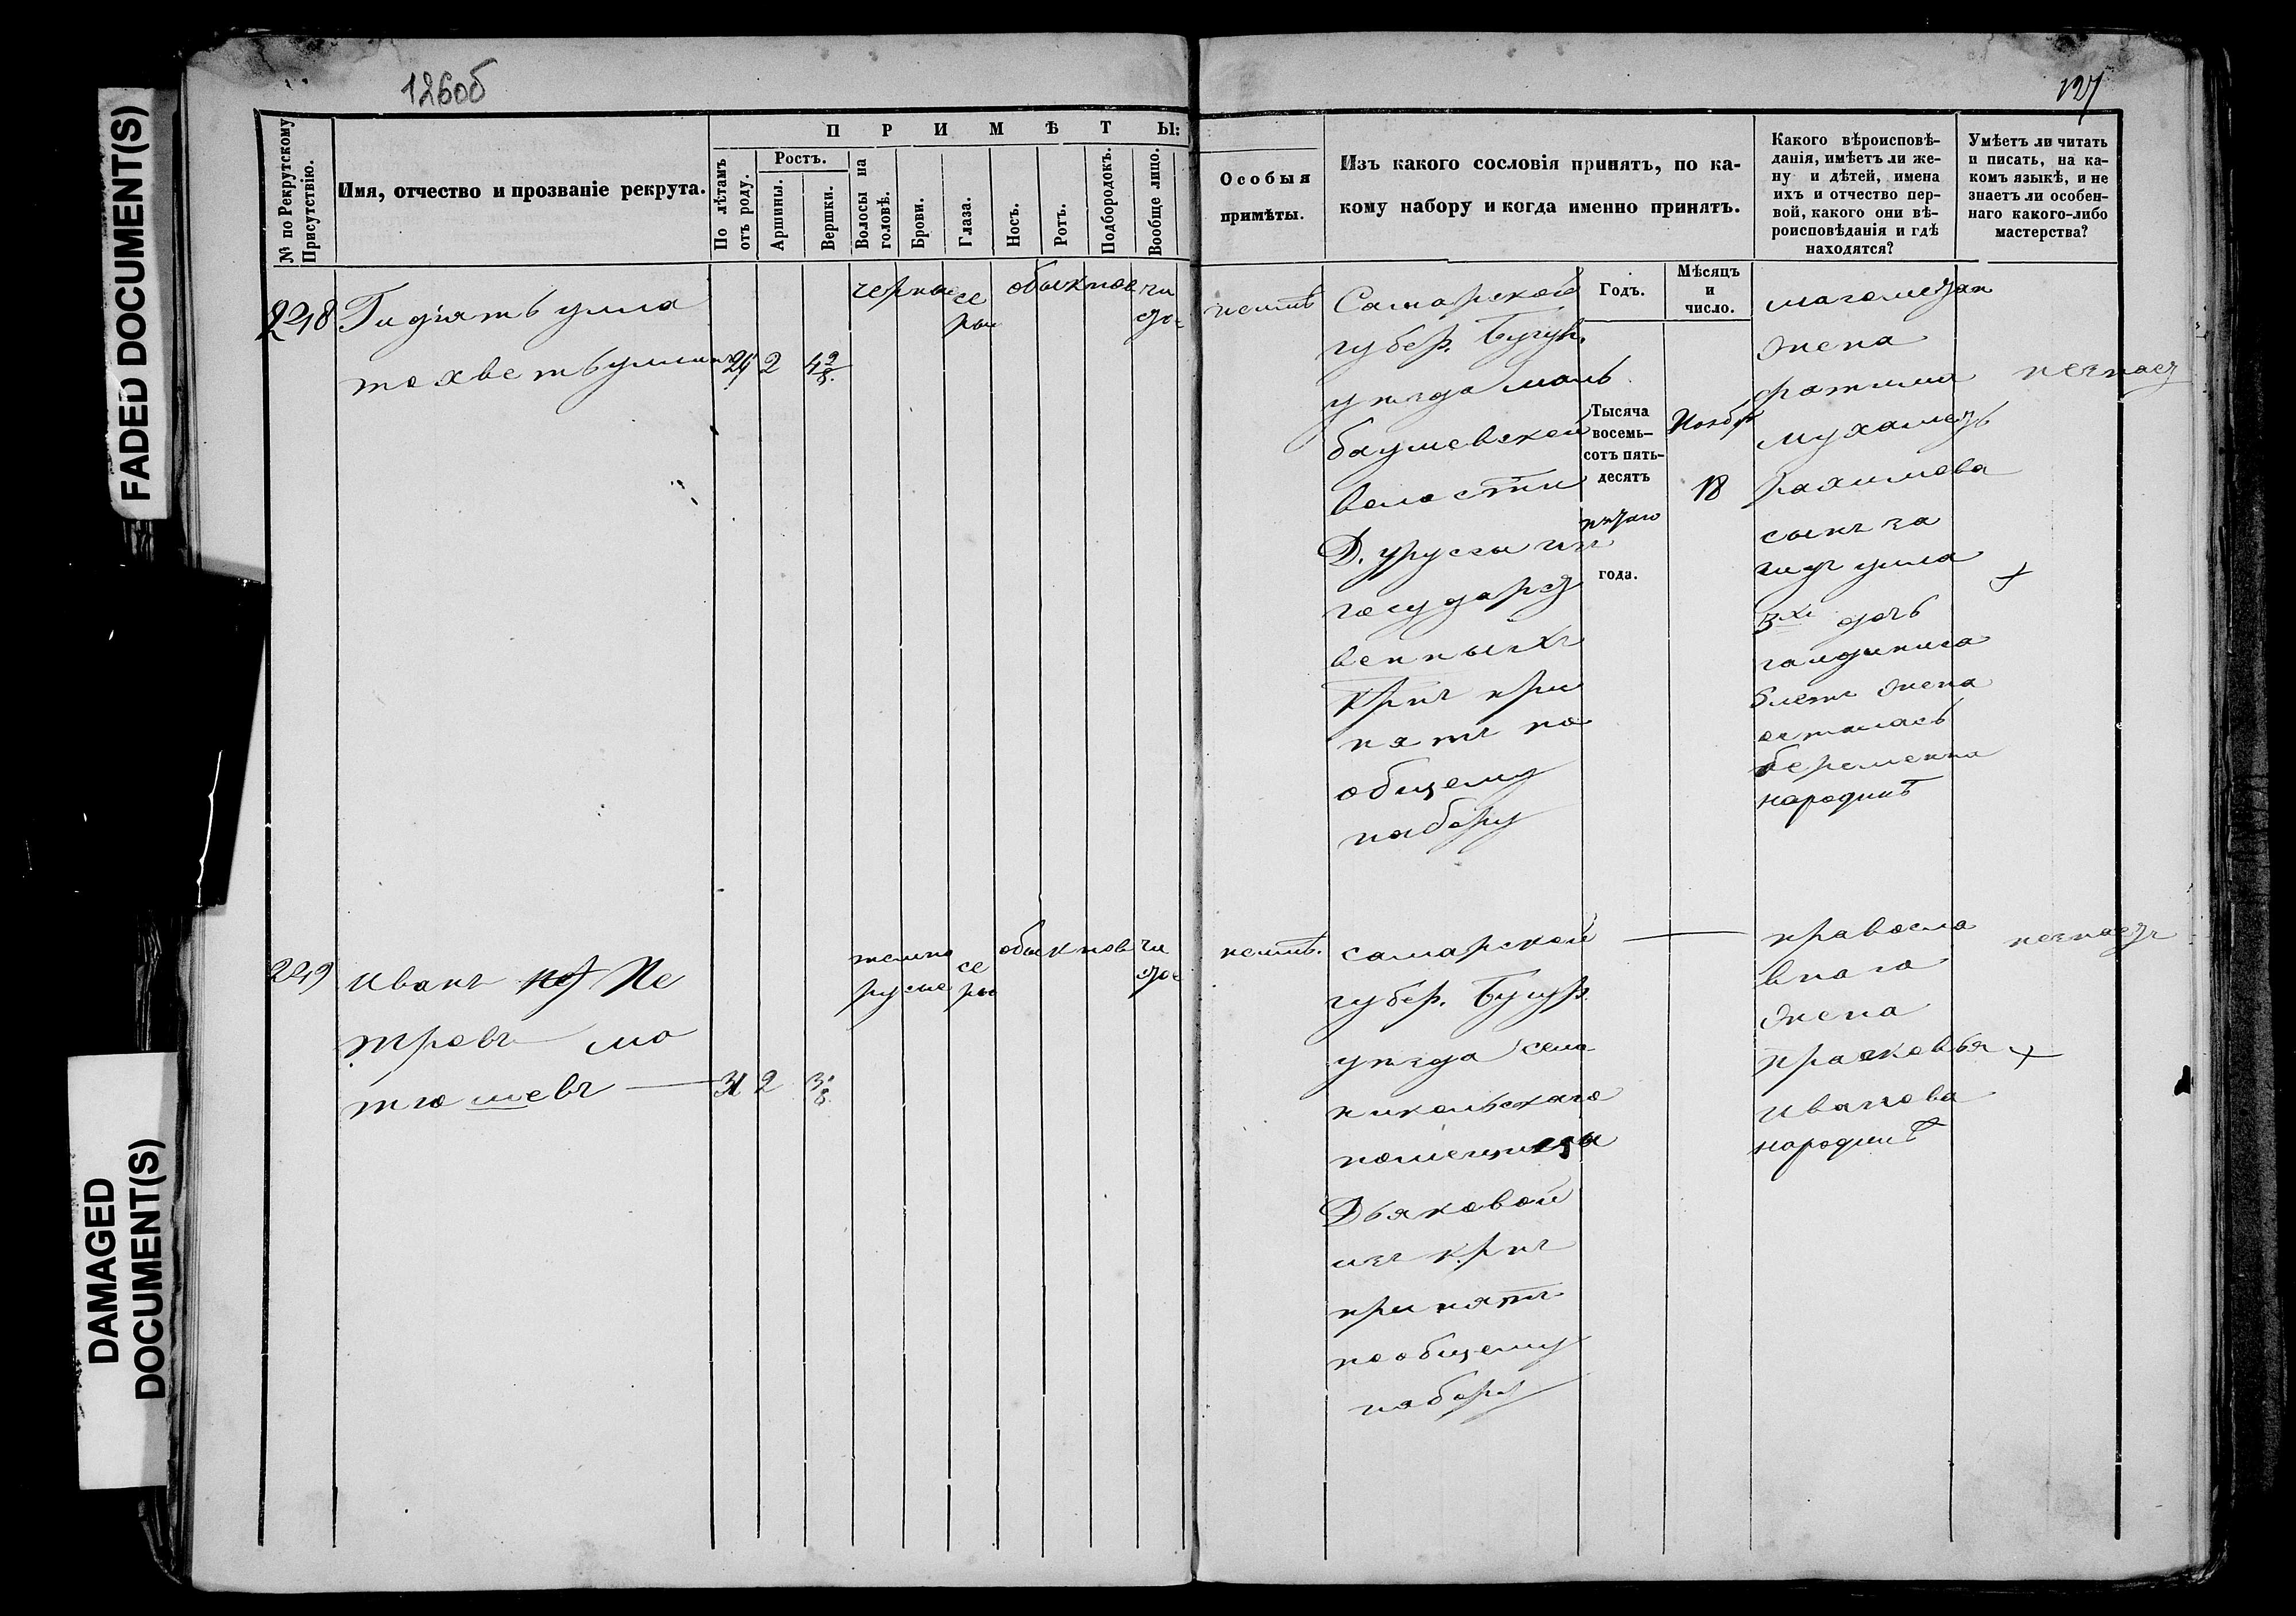 FADED DOCUMENT(S)
DAMAGED
DOCUMENT(S)
126об
127
№ по Рекрутскому
Присутствію.
Имя, отчество и прозваніе рекрута.
ПРИМѢТЫ:
По лѣтамъ
отъ роду.
Ростъ.
Аршины.
Вершки.
Волосы на
головѣ.
Брови.
Глаза.
Носъ.
Ротъ.
Подбородокъ.
Вообще лицо.
Особыя
примѣты.
Изъ какого сословія принятъ, по ка-
кому набору и когда именно принятъ.
Какого вѣроисповѣ-
данія, имѣетъ ли же-
ну и дѣтей, имена
ихъ и отчество пер-
вой, какого они вѣ-
роисповѣданія и гдѣ
находятся?
Умѣетъ ли читать
и писать, на ка-
комъ языкѣ, и не
знаетъ ли особен-
наго какого-либо
мастерства?
Годъ.
Мѣсяцъ
и
число.
248
Гидіятъ улла
24 2
черные
се
рые
обыкнов
чи
стое
неимѣ
Самарской
губер.
уѣзда
волости
Д.
государст
венныхъ
крнъ при
нятъ по
общему
набору
Тысяча
восемь-
сотъ пять-
десятъ
пятаго
года.
Нояб
18
магометан
жена
мухаметъ
рахимова
сынъ за
улла
дочь
жена
осталась
беременна
народинѣ
незнает
249
Иванъ Пе
тровъ ма
тюшевъ
31 2
темно
русые
се
рые
обыкнов
чи
стое
неимѣ.
самарской
губер. Бугур.
уѣзда села
никольскаго
помещицы
Дьяковой
изъ крнъ
принятъ
пообщему
набору
правосла
внаго
жена
прасковья
иванова
народинѣ
незнаетъ